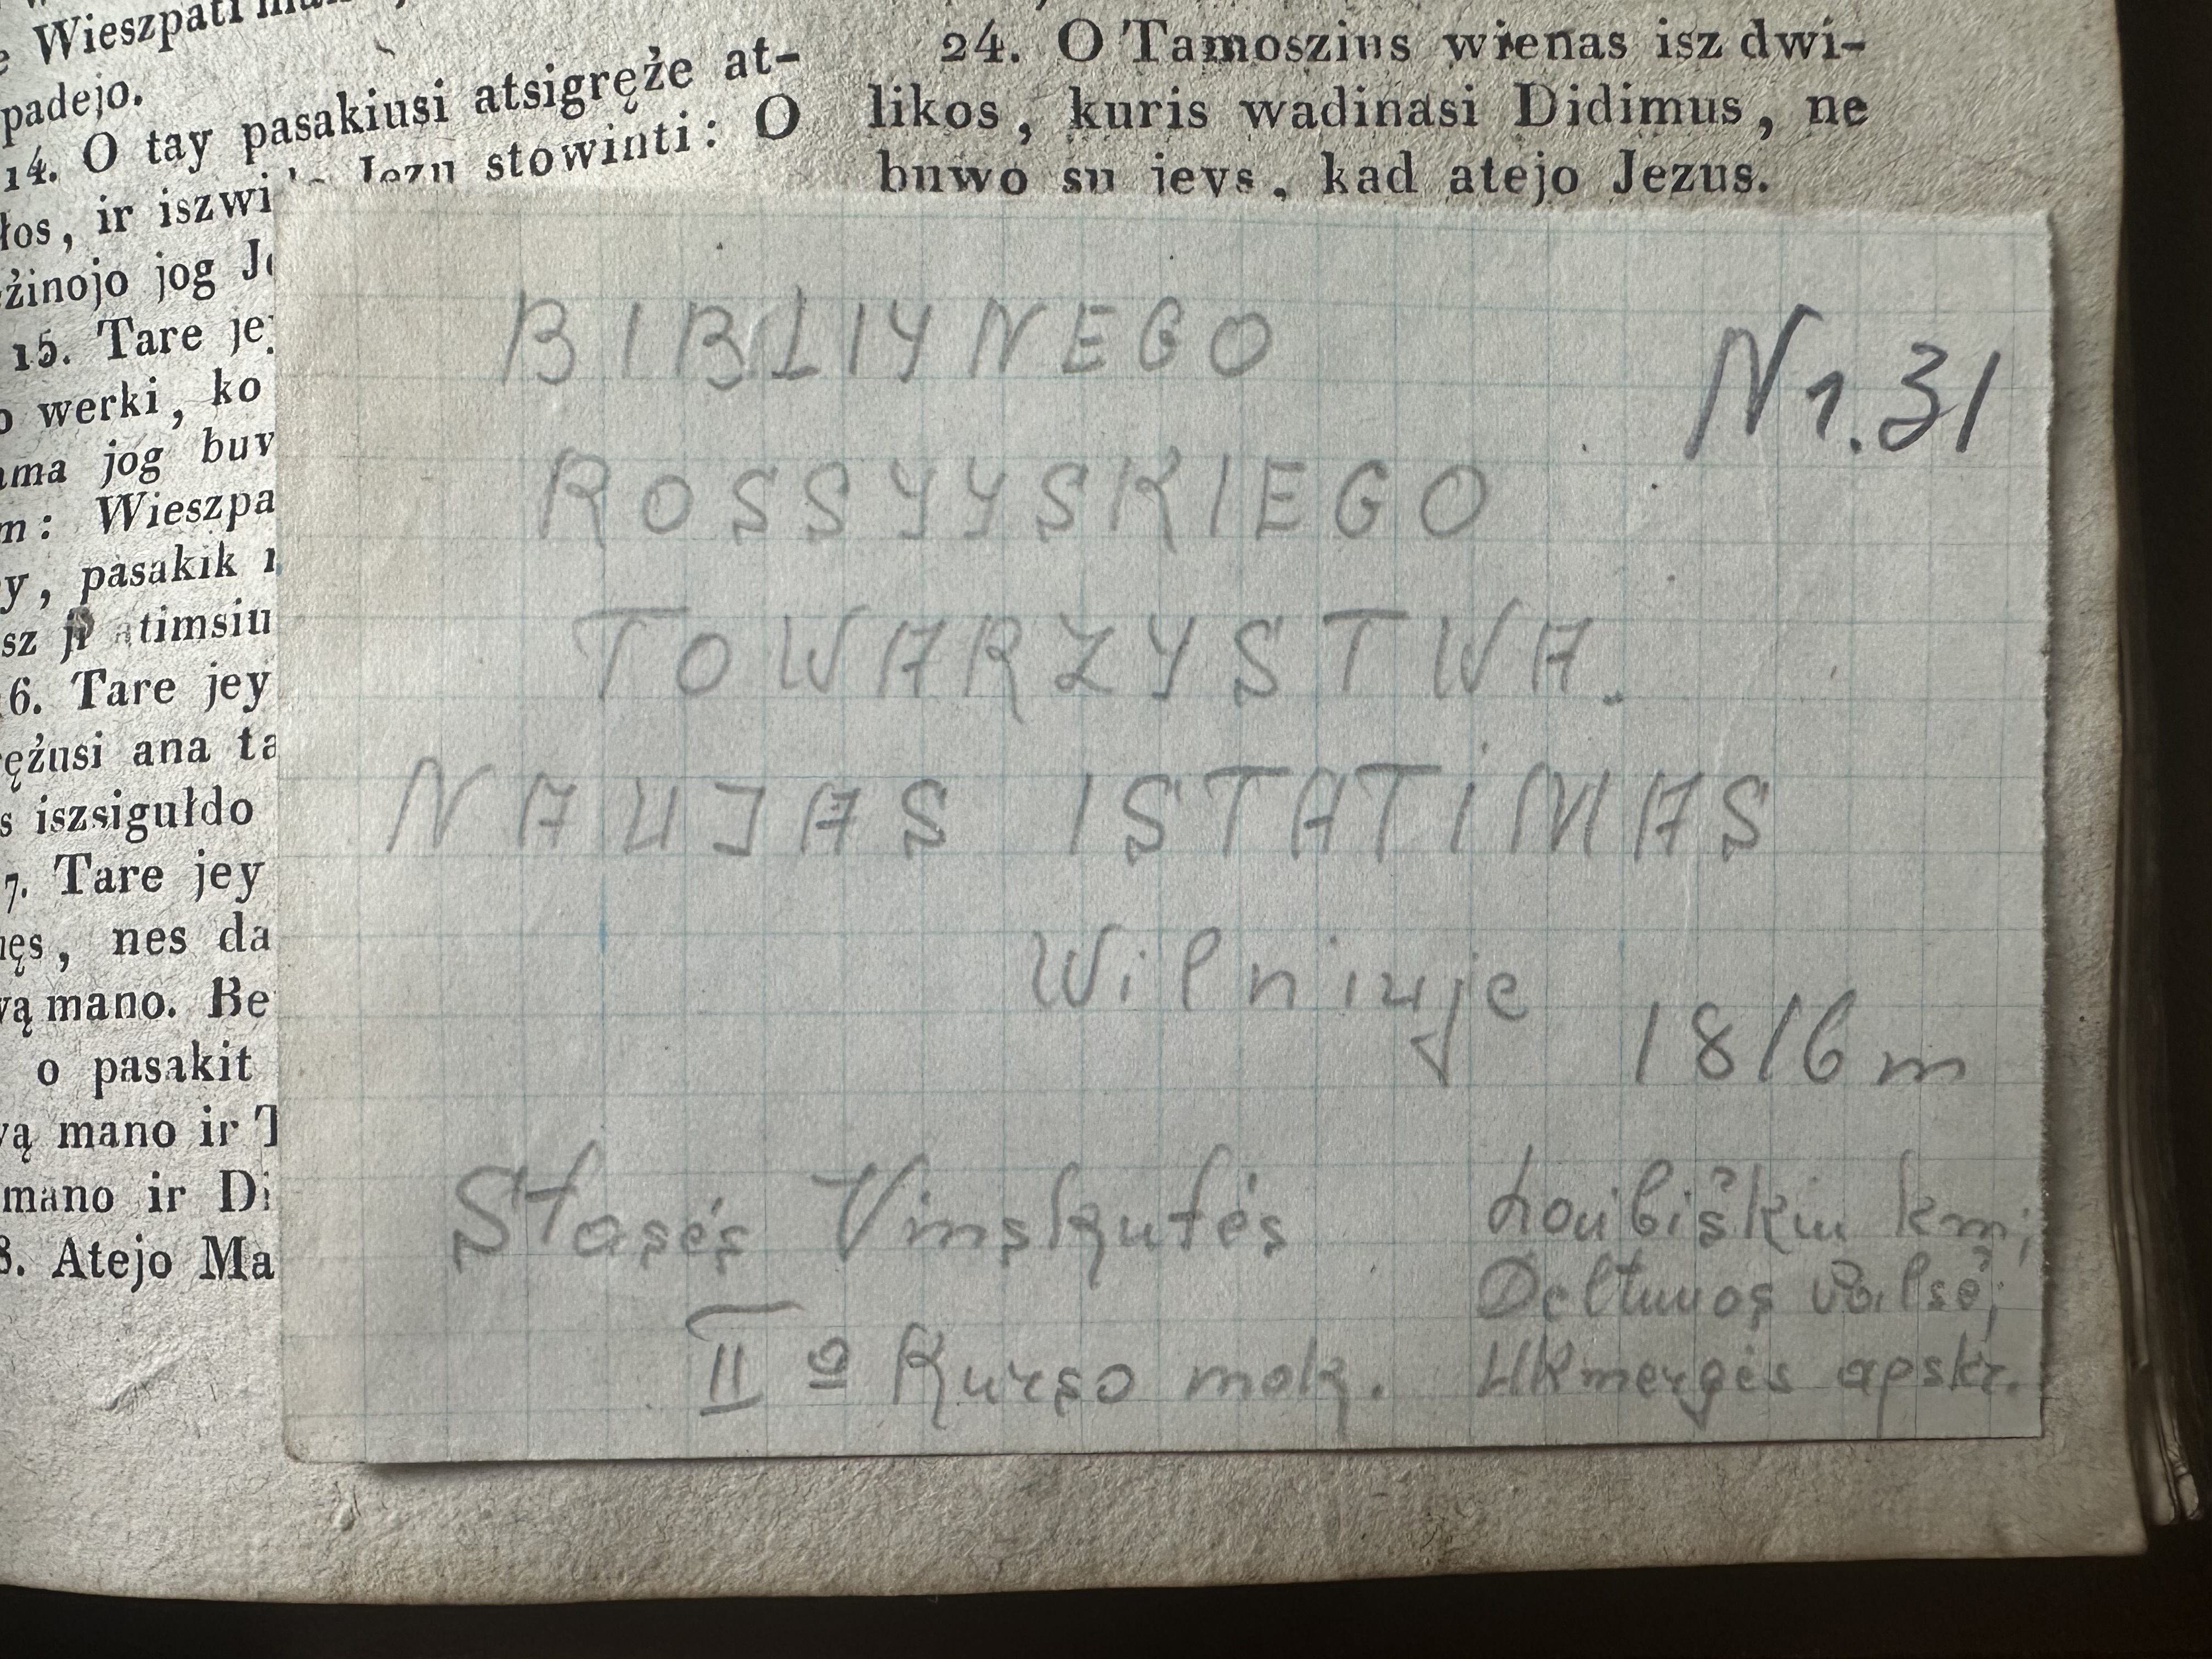 Wieszpati
padejo.
14. O tay pasakiusi atsigręże at-
łos, ir iszwi Jezu stowinti: O
żinojo jog Je
15. Tare jey
o werki, ko
ama jog buw
m: Wieszpa
y, pasakik
sz ji atimsiu
6. Tare jey
ężusi ana ta
s iszsigułdo
7. Tare jey
ęs, nes da
wą mano. Be
o pasakit
wą mano ir T
mano ir Di
8. Atejo Ma
24. O Tamoszius wienas isz dwi-
likos, kuris wadinasi Didimus, ne
buwo su jeys, kad atejo Jezus.
BIBLIYNEGO
Nr. 31
ROSSYYSKIEGO
TOWARZYSTWA.
NAUJAS ISTATIMAS
Wilniuje
1816 m
Stasės Vinskutės
II o Kurso mok.
km;
Deltuvos valsč;
Ukmergės apskr.